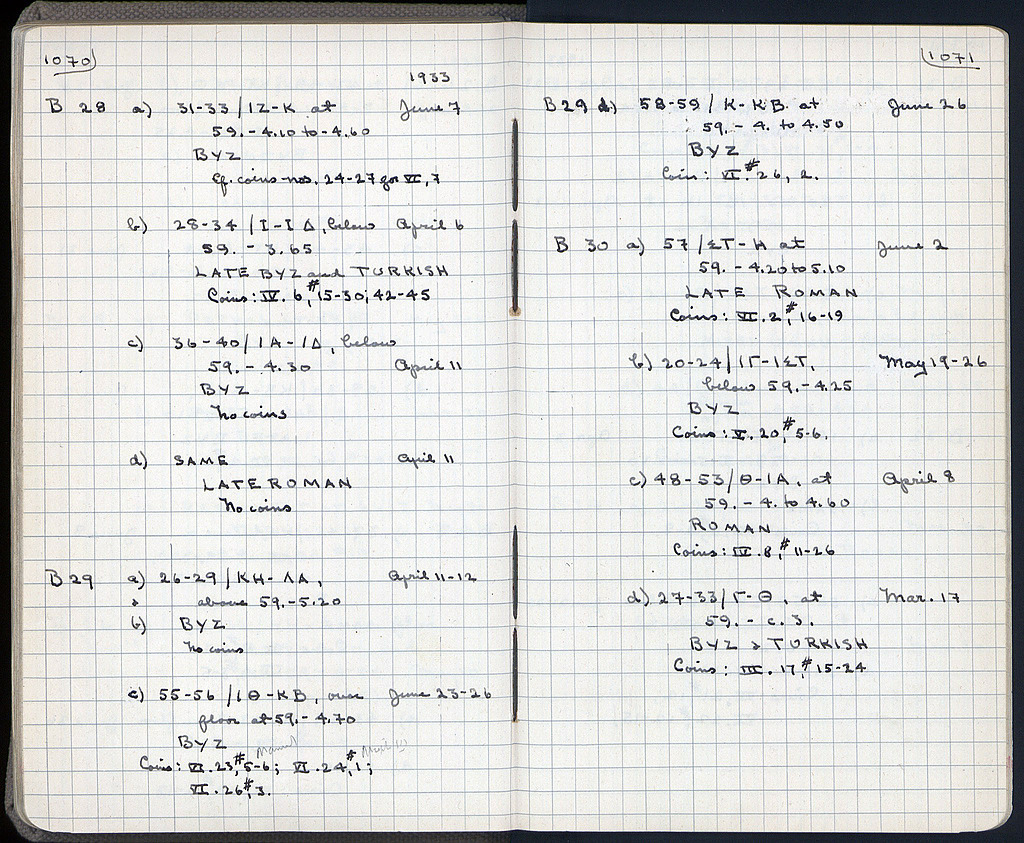 1070
1933
B 28 a) 31-33 / IZ-K at June 7
59.-4.10 to -4.60
BYZ
Cf. coins nos. 24-27 for VI, 7
b) 28-34 / I-IΔ, below April 6
59. - 3.65
LATE BYZ and TURKISH
Coins: IV. 6, # 15-30; 42-45
c) 36-40 / IA-IΔ, below
59. - 4.30 April 11
BYZ
No coins
d) SAME April 11
LATE ROMAN
No coins
B 29 a) 26-29 / KH-ΛA, April 11-12
& above 59.-5.20
b) BYZ
No coins
c) 55-56 / IΘ-KB, over June 23-26
floor at 59.-4.70
BYZ
Coins: VI. 23, # 5-6; VI. 24, # 1;
VI. 26, # 3.
1071
B 29 d) 58-59 / K-KB. at June 26
59. - 4. to 4.50
BYZ
Coin: VI. # 26, 2.
B 30 a) 57 / ΣT-H at June 2
59. - 4.20 to 5.10
LATE ROMAN
Coins: VI. 2, # 16-19
b) 20-24 / IΓ-IΣT, May 19-26
below 59.-4.25
BYZ
Coins: V. 20, # 5-6.
c) 48-53 / Θ-IA, at April 8
59. - 4. to 4.60
ROMAN
Coins: IV. 8, # 11-26
d) 27-33 / Γ-Θ, at Mar. 17
59. - c. 3.
BYZ & TURKISH
Coins: III. 17, # 15-24